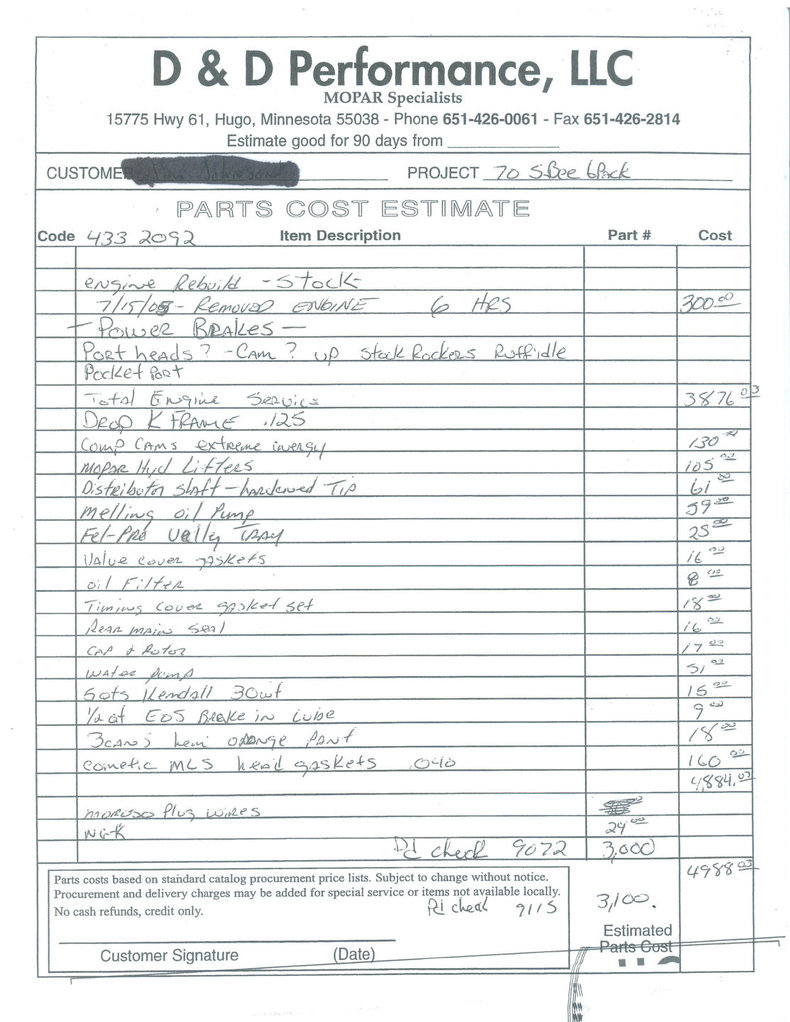 D & D Performance, LLC
MOPAR Specialists
15775 Hwy 61, Hugo, Minnesota 55038 - Phone 651-426-0061 - Fax 651-426-2814
Estimate good for 90 days from
CUSTOME PROJECT 70 S.Bee 6Pack
PARTS COST ESTIMATE
Code 433 2092 Item Description Part # Cost
engine Rebuild - Stock
7/15/05 - REMOVED ENGINE 6 HRS 300.00
- POWER BRAKES -
Port heads? - Cam? up Stock Rockers Ruff idle
Pocket Port
Total Engine Service 3876.03
DROP K FRAME .125
COMP CAMS extreme inergy 130
MOPAR Hyd Lifters 105.00
Distributor Shaft - hardened Tip 61.00
Melling oil Pump 59.00
Fel-Pro Vally TRAY 25.00
Valve cover gaskets 16.00
oil Filter 8.00
Timing cover gasket set 18.00
Rear main seal 16.00
CAP & Rotor 17.00
Water Pump 51.00
5qts Kendall 30wt 15.00
1/2 qt EOS BRAKE in Lube 9.00
3cans hemi orange Pant 18.00
cometic MLS head gaskets .040 160.00
4,884.03
MOROSO Plug wires
NGK 24.00
Pd check 9072 3,000
4988.03
Parts costs based on standard catalog procurement price lists. Subject to change without notice.
Procurement and delivery charges may be added for special service or items not available locally.
No cash refunds, credit only. Pd check 9115 3,100.
Estimated
Parts Cost
Customer Signature (Date)